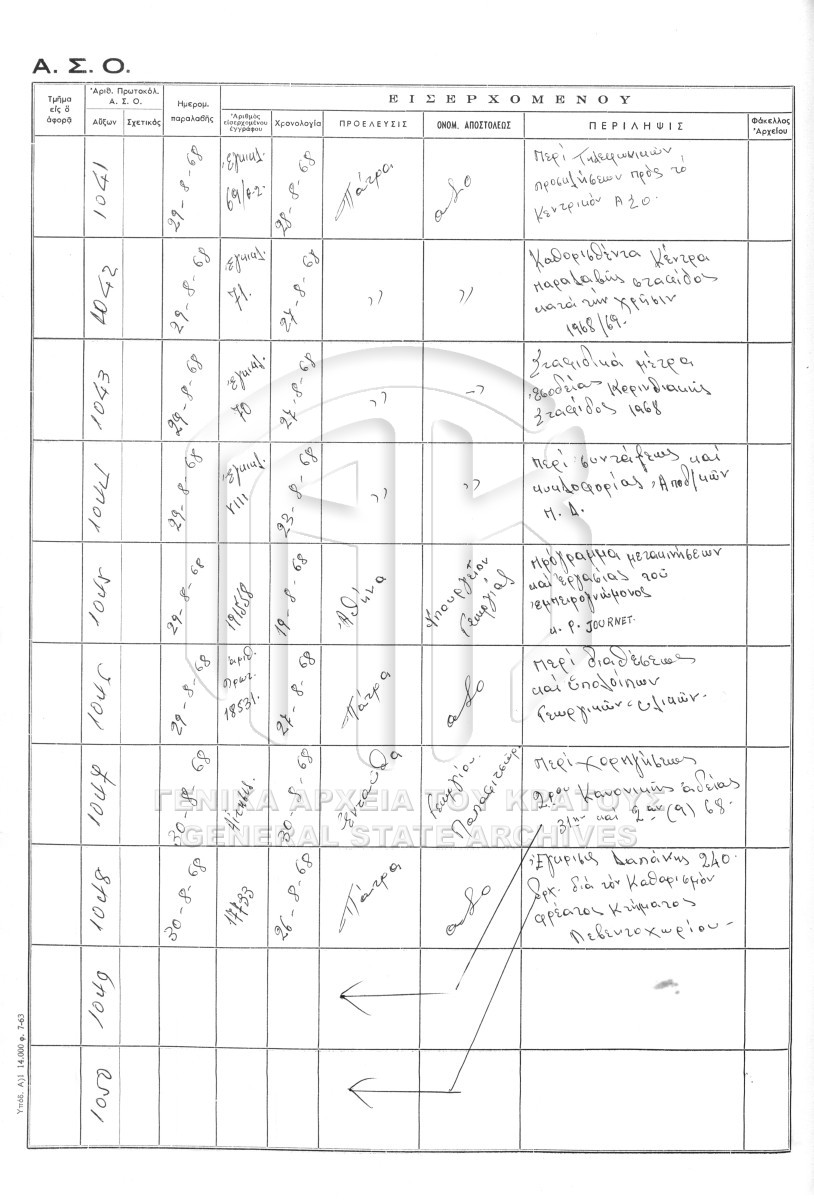 Α. Σ. Ο.
Τμῆμα εἰς ὃ ἀφορᾷ
Ἀριθ. Πρωτοκόλ. Α. Σ. Ο.
Αὔξων Σχετικός
Ἡμερομ. παραλαβῆς
ΕΙΣΕΡΧΟΜΕΝΟΥ
Ἀριθμὸς εἰσερχομένου ἐγγράφου
Χρονολογία
ΠΡΟΕΛΕΥΣΙΣ
ΟΝΟΜ. ΑΠΟΣΤΟΛΕΩΣ
ΠΕΡΙΛΗΨΙΣ
Φάκελλος Ἀρχείου
1041 29-8-68 Ἐγκυκλ. 69/ 28-8-68 Πάτρα ΑΣΟ
Περί Τηλεφωνικῶν
προσκλήσεων πρός τό
Κεντρικόν ΑΣΟ.
1042 29-8-68 Ἐγκυκλ. 71. 27-8-68 〃 〃
Καθορισθέντα Κέντρα
παραλαβῆς σταφίδος
κατά τήν χρῆσιν
1968/69.
1043 29-8-68 Ἐγκυκλ. 70 27-8-68 〃 〃
Σταφιδικά μέτρα
ἐσοδείας Κορινθιακῆς
Σταφίδος 1968
1044 29-8-68 Ἐγκυκλ. VIII 23-8-68 〃 〃
Περί συντάξεως καί
κυκλοφορίας Ἀποθ/κῶν
Π. Δ.
1045 29-8-68 191558 19-8-68 Ἀθήνα Ὑπουργεῖον Γεωργίας
Πρόγραμμα μετακινήσεων
καί ἐργασίας τοῦ
ἐμπειρογνώμονος
κ. P. JOURNET.
1046 29-8-68 ἀριθ. Πρωτ. 18531. 27-8-68 Πάτρα ΑΣΟ
Περί διαθέσεως
καί ὑπολοίπων
Γεωργικῶν ὑλικῶν.
1047 30-8-68 Αἴτησις. 30-8-68 Ἐνταῦθα Γεωργίου
Περί χορηγήσεως
2ρου Κανονικῆς ἀδείας
31ην καί 2αν (9) 68.
1048 30-8-68 17733 26-8-68 Πάτρα ΑΣΟ
Ἔγκρισις Δαπάνης 240
δρχ. διά τόν Καθαρισμόν
φρέατος Κτήματος
Λεβεντοχωρίου
1049
1050
ΓΕΝΙΚΑ ΑΡΧΕΙΑ ΤΟΥ ΚΡΑΤΟΥΣ
GENERAL STATE ARCHIVES
Ὑπόδ. Α)1 14.000 φ. 7-63